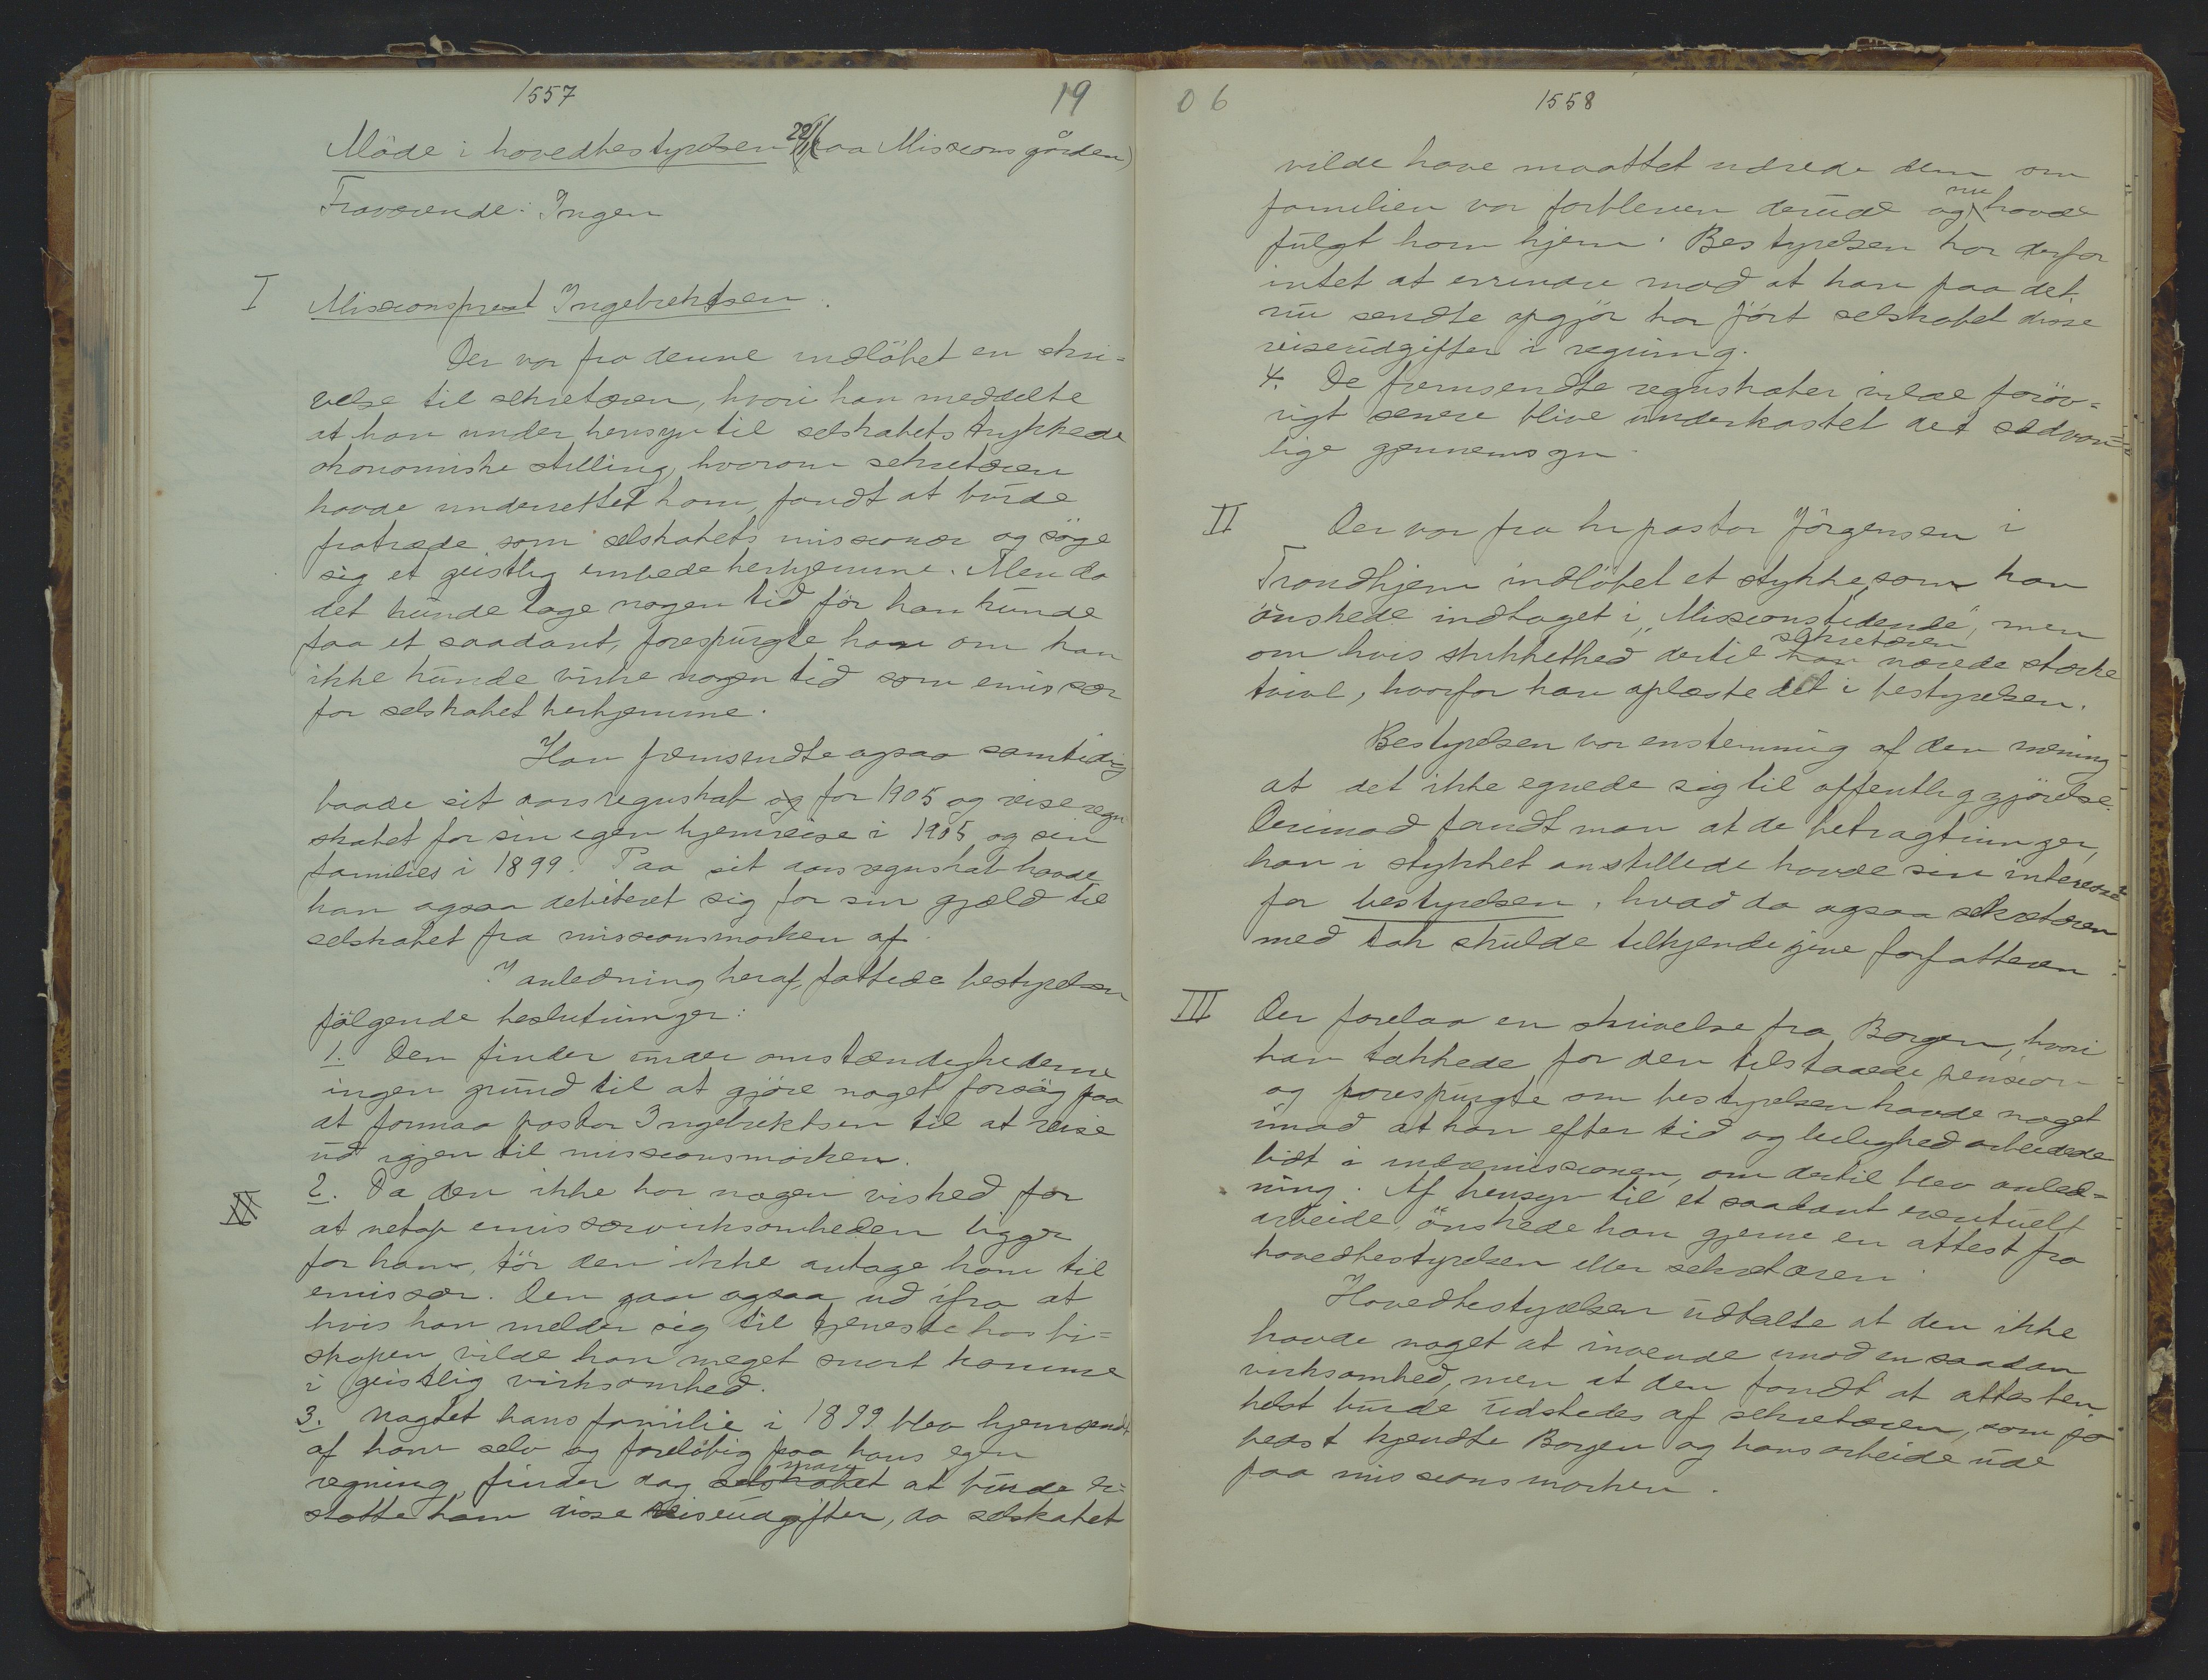 1557
19
Møde i hovedbestyrelsen 22/1 (paa Missionsgården)
Fraværende: Ingen
I Missionsprest Ingebrektsen.
Der var fra denne indløbet en skri=
velse til sekretæren, hvori han meddelte
at han under hensyn til selskabets trykkede
økonomiske stilling, hvorom sekretæren
havde underrettet ham, fandt at burde
fratræde som selskabets missionær og søge
sig et geistlig embede herhjemme. Men da
det kunde tage nogen tid før han kunde
faa et saadant, forespurgte han om han
ikke kunde virke nogen tid som emissær
for selskabet herhjemme.
Han fremsendte ogsaa samtidig
baade sit aarsregnskab og for 1905 og reiseregn
skabet for sin egen hjemreise i 1905 og sin
families i 1899. Paa sit aarsregnskab havde
han ogsaa debiteret sig for sin gjæld til
selskabet fra missionsmarken af.
I anledning heraf, fattede bestyrelsen
følgende beslutninger:
1. Den finder under omstændighederne
ingen grund til at gjøre noget forsøg paa
at formaa pastor Ingebrektsen til at reise
ud igjen til missionsmarken.
II 2. Da den ikke har nogen vished for
at netop emissærvirksomheden ligger
for ham, tør den ikke antage ham til
emissær. Den gaar ogsaa ud ifra at
hvis han melder sig til tjeneste hos bi=
skopen vilde han meget snart komme
i geistlig virksomhed.
3. Uagtet hans familie i 1899 blev hjemsendt
af ham selv og foreløbig paa hans egen
man
regning, finder dog selskabet at burde er=
statte ham disse reiseudgifter, da selskabet
06
1558
vilde have maattet udrede dem om
nu
familien var forbleven derude og havde
fulgt ham hjem. Bestyrelsen har derfor
intet at erindre mod at han paa det
nu sendte opgjør har ført selskabet disse
reiseudgifter i regning.
4. De fremsendte regnskaber vilde forøv=
rigt senere blive underkastet det sædvan=
lige gjennemsyn.
II Der var fra hr pastor Jørgensen i
Trondhjem indløbet et stykke, som han
ønskede indtaget i „Missionstidende", men
sekretæren
om hvis skikkethed dertil han nærede stærke
tvivl, hvorfor han oplæste det i bestyrelsen.
Bestyrelsen var enstemmig af den mening
at det ikke egnede sig til offentliggjørelse.
Derimod fandt man at de betragtninger,
han i stykket anstillede havde sin interesse
for bestyrelsen, hvad da ogsaa sekretæren
med tak skulde tilkjendegive forfatteren
III Der forelaa en skrivelse fra Borgen, hvori
han takkede for den tilstaaede pension
og forespurgte om bestyrelsen havde noget
imod at han efter tid og leilighed arbeidede
lidt i indremissionen, om dertil blev anled=
ning. Af hensyn til et saadant eventuelt
arbeide, ønskede han gjerne en attest fra
hovedbestyrelsen eller sekretæren.
Hovedbestyrelsen udtalte at den ikke
havde noget at invende mod en saadan
virksomhed, men at den fandt at attesten
helst burde udstedes af sekretæren, som jo
bedst kjendte Borgen og hans arbeide ude
paa missionsmarken.